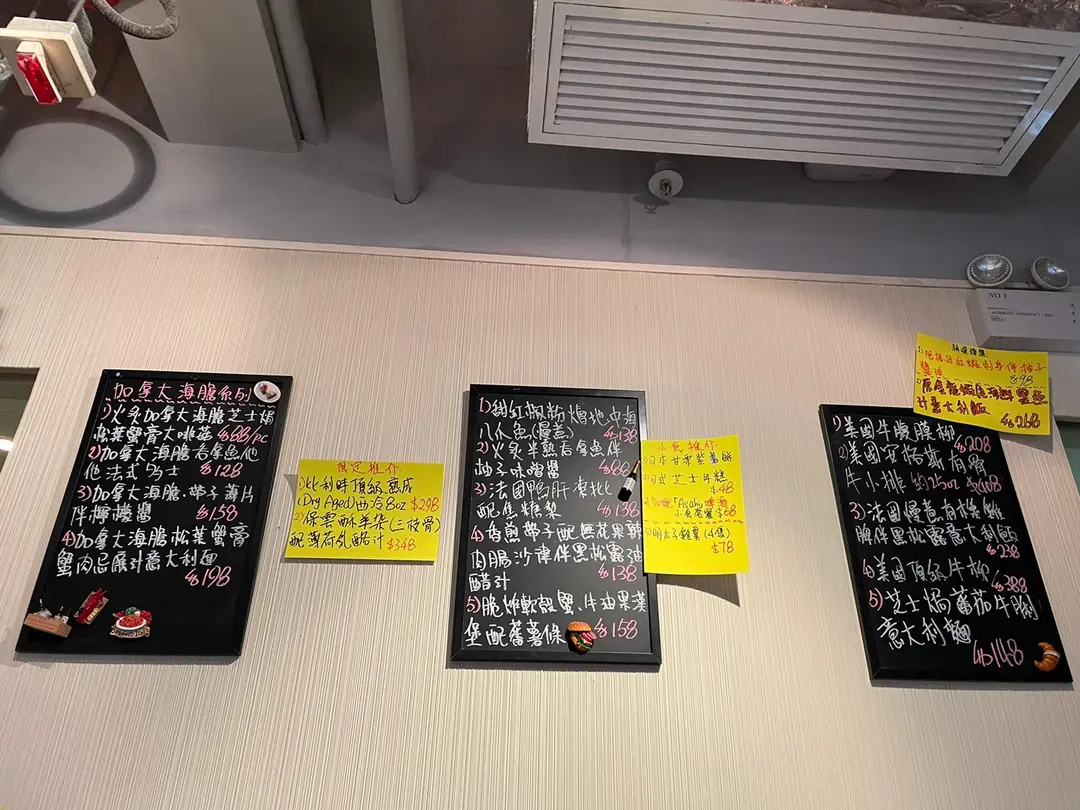 加拿大海膽系列
1)火炙加拿大海膽芝士焗
松葉蟹膏大啡菇 $88/PC
2)加拿大海膽吞拿魚他
他法式多士 $128
3)加拿大海膽.帶子薄片
伴檸檬醬 $158
4)加拿大海膽松葉蟹膏
蟹肉忌廉汁意大利麵
$198
限定推介
1)比利時頂級熟成
(Dry Aged)西冷8oz $298
2)保雲酥羊架(三枝骨)
配薄荷乳酪汁 $348
1)甜紅椒粉燴地中海
八爪魚(慢煮) $138
2)火炙半熟吞拿魚伴
柚子味噌醬 $88
3)法國鴨肝凍批
配焦糖梨 $138
4)香煎帶子配無花果辣
肉腸.沙律伴黑松露油
醋汁 $138
5)脆炸軟殼蟹.牛油果漢
堡配蕃薯條 $158
小食推介
1)日本甘栗紫薯餅
2)日式芝士年糕
$48
3)加配「Asahi啤酒
小食餐 $68
明太子雞翼(4隻)
$78
精選
刺身伴柚子
醬油 $98
2)原隻龍蝦尾海鮮蟹魚
汁意大利飯 $268
1)美國牛腹膜柳
$208
2)美國安格斯有骨
牛小排 約25oz $488
3)法國慢煮有機雞
胸伴黑松露意大利飯
$238
4)美國頂級牛柳
$388
5)芝士焗蕃茄牛脷
意大利麵
$148
NO. 1